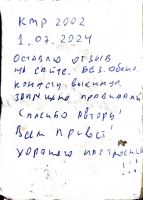 КМР 2002
1.07.2024
Оставлю отзыв
на сайте. Без обмена
конфету выкинул
Спасибо автору!
Всем привет!
Хорошего настроения
!!!